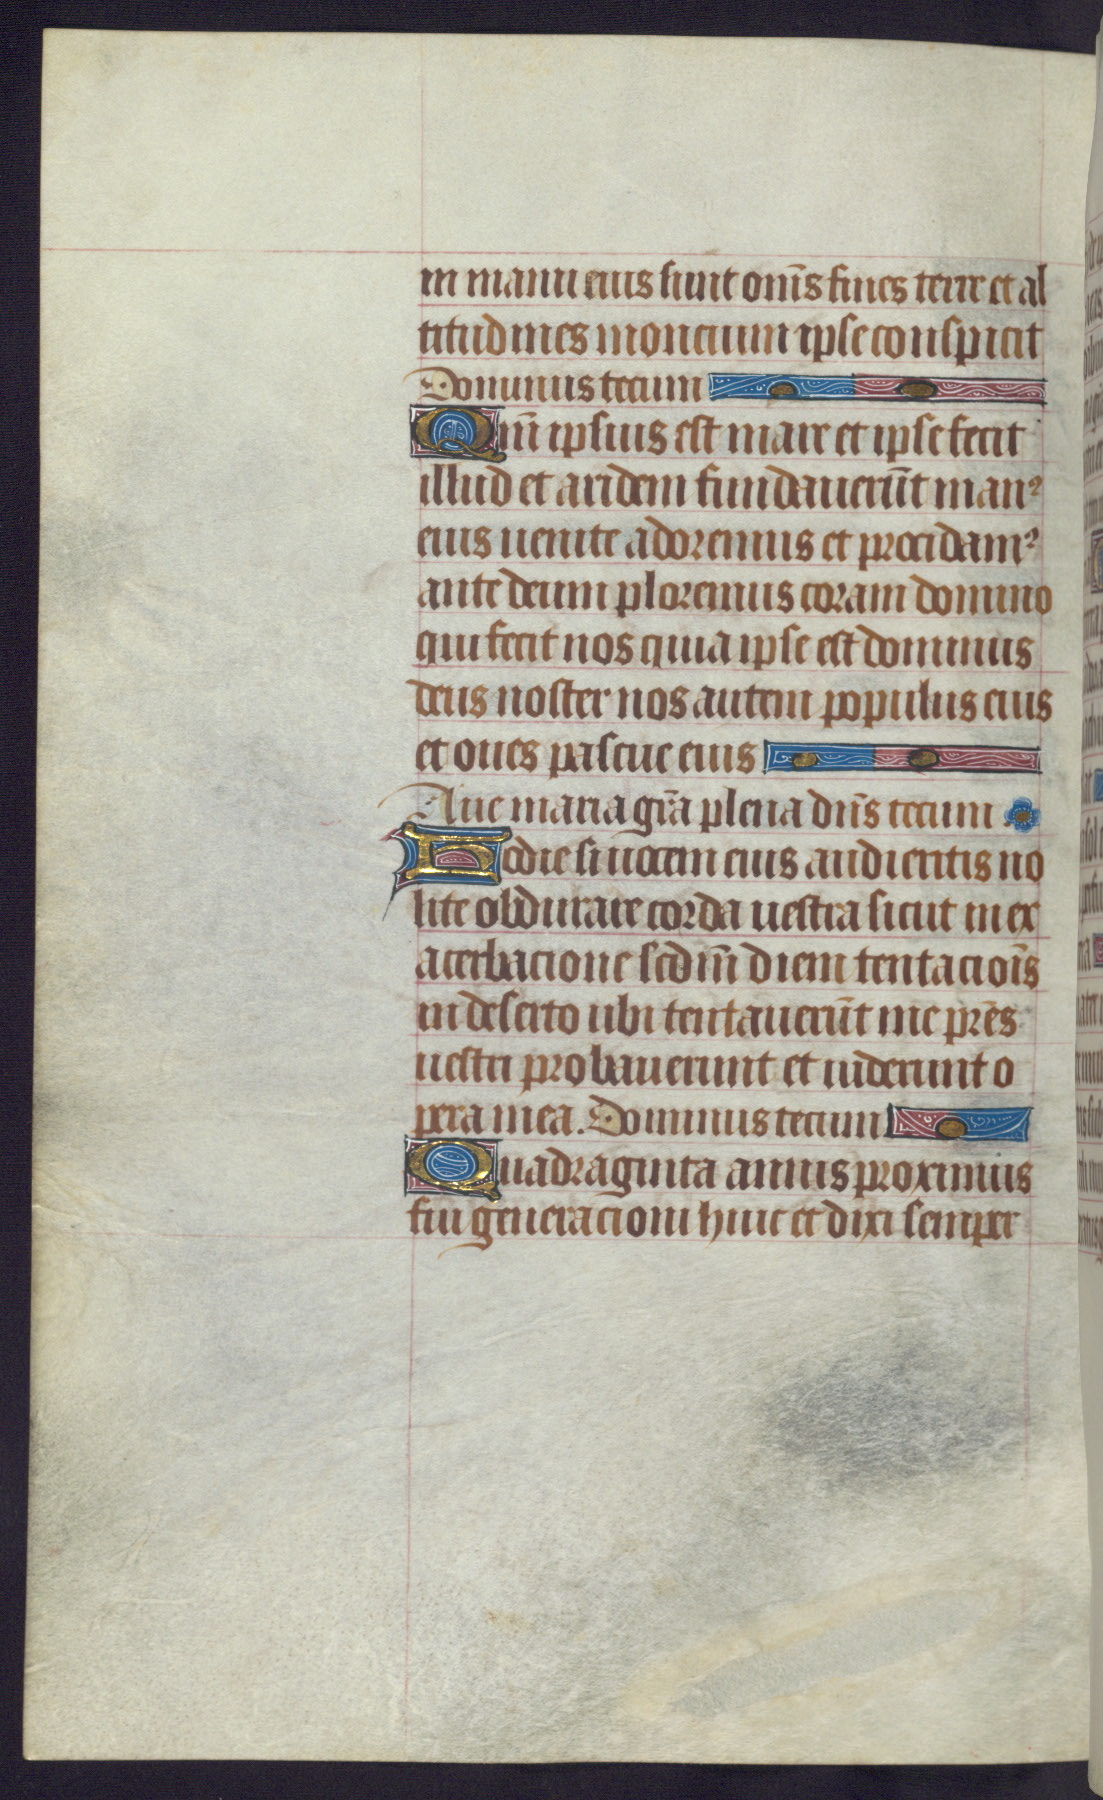 in manu eius sunt om̄s fines terre et al
titudines moncium ipse conspicit
Dominus tecum
Qm̄ ipsius est mare et ipse fecit
illud et aridem fundauerūt manꝰ
eius uenite adoremus et procidamꝰ
ante deum ploremus coram domino
qui fecit nos quia ipse est dominus
deus noster nos autem populus eius
et oues pascue eius
Aue maria grā plena dn̄s tecum
Hodie si uocem eius audieritis no
lite obdurare corda uestra sicut in ex
acerbacione scdm̄ diem tentacioīs
in deserto ubi tentauerūt me pr̄es
uestri probauerunt et uiderunt o
pera mea. Dominus tecum
Quadraginta annis proximus
fui generacioni huic et dixi semper